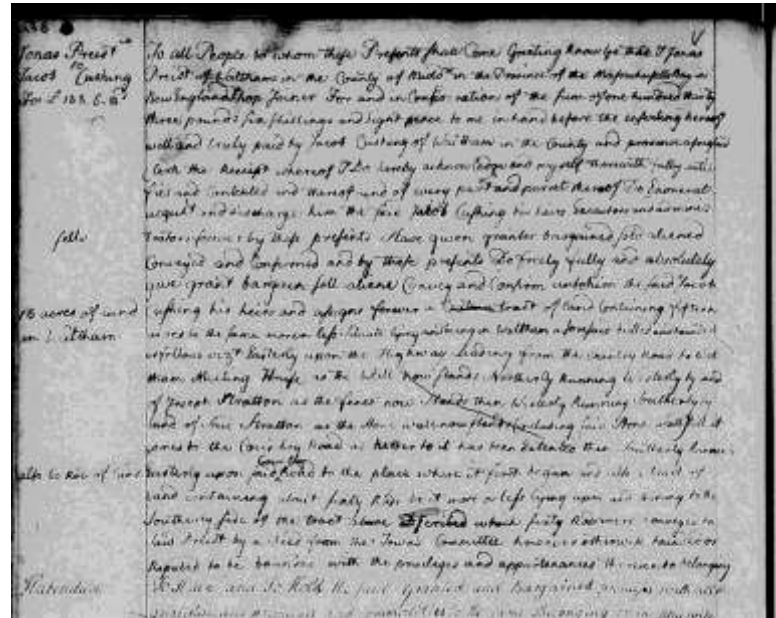 Jonas Priest
to
Jacob Cushing
For £ 133. 6. 8
To all People to whom these Presents shall Come Greeting Know ye that I Jonas
Priest of Waltham in the County of Midds. in the Province of the Massachusetts Bay in
New England Shop Joiner For and in Consideration of the sum of one hundred thirty
three pounds six shillings and Eight pence to me in hand before the ensealing hereof
well and truly paid by Jacob Cushing of Waltham in the County and province aforesaid
Clerk the Receipt whereof I Do hereby acknowledge and myself therewith fully satis
fied and Contented and thereof and of every part and parcel thereof Do Exonerate
acquit and discharge him the said Jacob Cushing his heirs Executors and adminis
trators forever by these presents Have given granted bargained sold aliened
Conveyed and Confirmed and by these presents Do freely fully and absolutely
give grant bargain sell aliene Convey and Confirm unto him the said Jacob
15 acres of land
in Waltham
Cushing his heirs and assigns forever a tract of land Containing fifteen
acres be the same more or less Situate lying and being in Waltham aforesaid butted and bounded
as follows vizt Easterly upon the Highway leading from the Country Road to Wal
tham Meeting House as the Wall now stands Northerly Running Westerly by land
of Joseph Stratton as the fence now stands then Westerly Running Southerly by
land of said Stratton as the wall now
to the Country Road as it has been then Southerly Runing
also 40 Rods of land
Easterly upon said Country Road to the place where it first began and also a of
land containing about forty Rods be it more or less lying upon and to the
Southerly side of the tract above Described which forty Rods were conveyed to
said Priest by a deed from the Towns Committee however otherwise butted or
Reputed to be bounded with the privileges and appurtenances thereto belonging
Habendum
To Have and To Hold the said Granted and Bargained premises with all